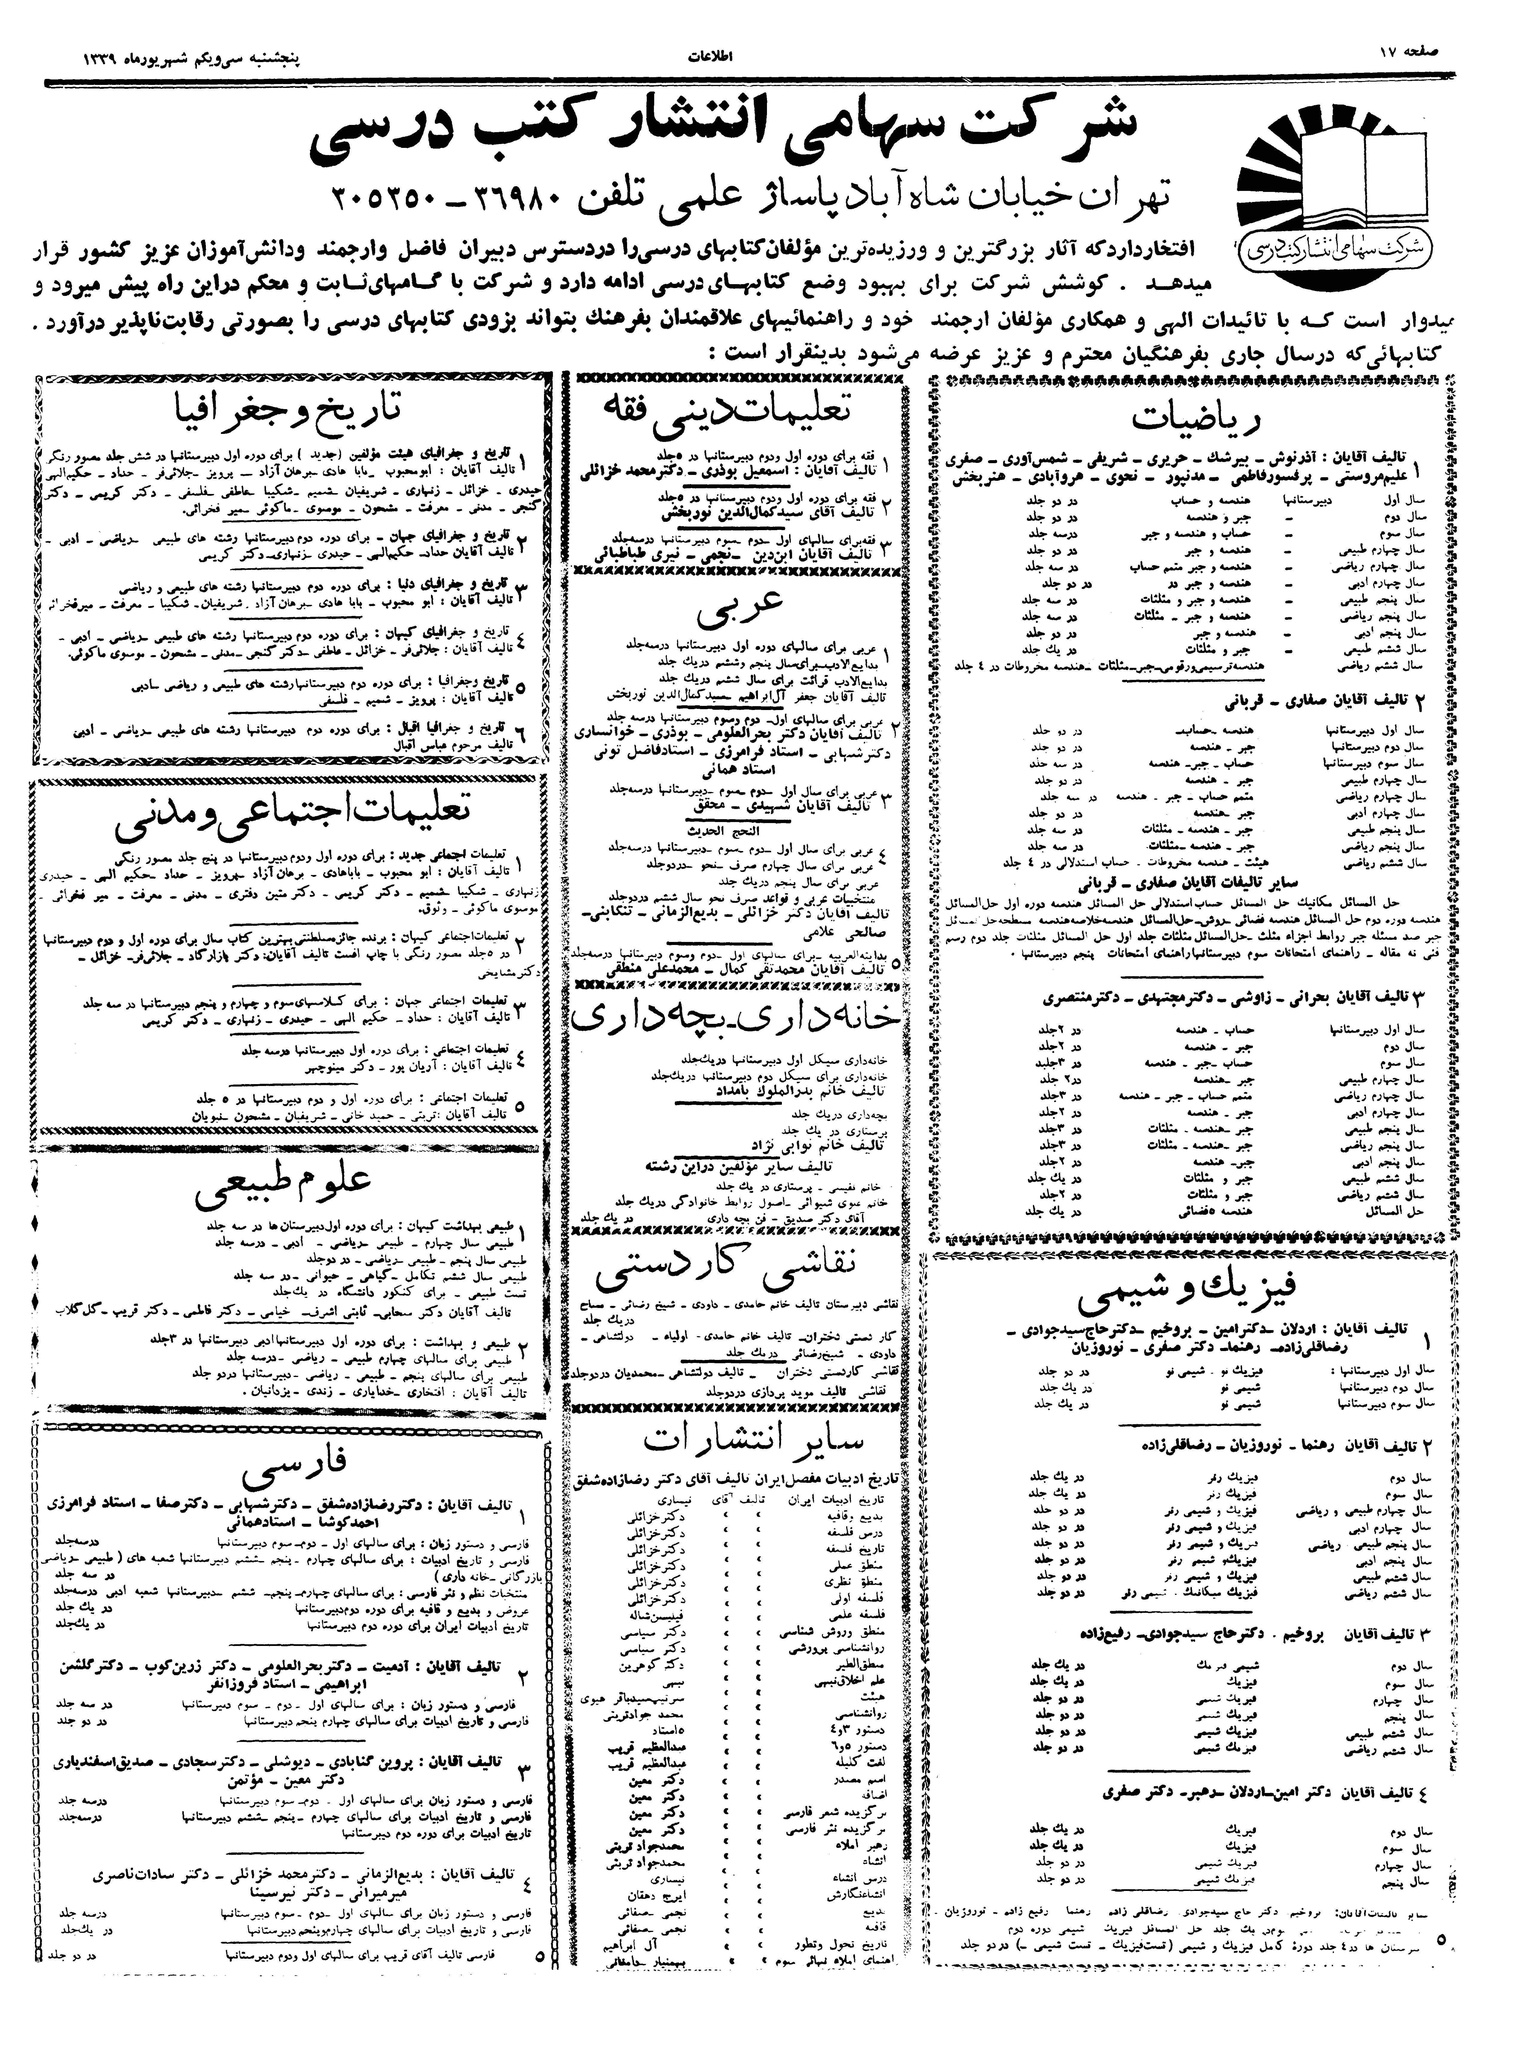 صفحه ۱۷
اطلاعات
پنجشنبه سی‌ویکم شهریورماه ۱۳۳۹
شرکت سهامی انتشار کتب درسی
تهران خیابان شاه‌آباد پاساژ علمی تلفن ۳۶۹۸۰ – ۳۰۵۳۵۰
شرکت سهامی انتشار کتب درسی
افتخار دارد که آثار بزرگترین و ورزیده‌ترین مؤلفان کتابهای درسی را در دسترس دبیران فاضل و ارجمند و دانش‌آموزان عزیز کشور قرار
میدهد . کوشش شرکت برای بهبود وضع کتابهای درسی ادامه دارد و شرکت با گامهای ثابت و محکم در این راه پیش میرود و
میدوار است که با تائیدات الهی و همکاری مؤلفان ارجمند خود و راهنمائیهای علاقمندان بفرهنك بتواند بزودی کتابهای درسی را بصورتی رقابت‌ناپذیر درآورد .
کتابهائی که در سال جاری بفرهنگیان محترم و عزیز عرضه می‌شود بدینقرار است :
ریاضیات
۱ تالیف آقایان : آذرنوش – بیرشك – حریری – شریفی – شمس‌آوری – صفری
علیم‌مروستی – پرفسورفاطمی – مدنیپور – نحوی – هروآبادی – هنربخش
سال اول دبیرستانها هندسه و حساب در دو جلد
سال دوم – جبر و هندسه در دو جلد
سال سوم – حساب و هندسه و جبر درسه جلد
سال چهارم طبیعی – هندسه و جبر در دو جلد
سال چهارم ریاضی – هندسه و جبر متمم حساب در سه جلد
سال چهارم ادبی – هندسه و جبر در دو جلد
سال پنجم طبیعی – هندسه و جبر و مثلثات در سه جلد
سال پنجم ریاضی – هندسه و جبر – مثلثات در سه جلد
سال پنجم ادبی – هندسه و جبر در دو جلد
سال ششم طبیعی – جبر و مثلثات در یك جلد
سال ششم ریاضی هندسه ترسیمی و رقومی–جبر–مثلثات –هندسه مخروطات در ٤ جلد
۲ تالیف آقایان صفاری – قربانی
سال اول دبیرستانها هندسه –حساب– در دو جلد
سال دوم دبیرستانها جبر – هندسه در دو جلد
سال سوم دبیرستانها حساب – جبر– هندسه در سه جلد
سال چهارم طبیعی جبر – هندسه در دو جلد
سال چهارم ریاضی متمم حساب – جبر . هندسه در سه جلد
سال چهارم ادبی جبر – هندسه در دو جلد
سال پنجم طبیعی جبر – هندسه – مثلثات در سه جلد
سال پنجم ریاضی جبر – هندسه –مثلثات در سه جلد
سال ششم ریاضی هیئت – هندسه مخروطات . حساب استدلالی در ٤ جلد
سایر تالیفات آقایان صفاری – قربانی
حل المسائل مکانیك حل المسائل حساب استدلالی حل المسائل هندسه دوره اول حل‌المسائل
هندسه دوره دوم حل المسائل هندسه فضائی –روش–حل‌المسائل هندسه خلاصه هندسه مسطحه حل‌المسائل
جبر صد مسئله جبر روابط اجزاء مثلث –حل‌المسائل مثلثات جلد اول حل المسائل مثلثات جلد دوم رسم
فنی نه مقاله – راهنمای امتحانات سوم دبیرستانها راهنمای امتحانات پنجم دبیرستانها .
۳ تالیف آقایان بحرانی – زاوشی – دکترمجتهدی – دکترمنتصری
سال اول دبیرستانها حساب – هندسه در ۲جلد
سال دوم جبر – هندسه در ۲جلد
سال سوم حساب –جبر – هندسه در ۳جلد
سال چهارم طبیعی جبر –هندسه در۲ جلد
سال چهارم ریاضی متمم حساب – جبر – هندسه در ۳جلد
سال چهارم ادبی جبر – هندسه در ۲جلد
سال پنجم طبیعی جبر – هندسه – مثلثات در ۳جلد
سال پنجم ریاضی جبر –هندسه – مثلثات در ۳جلد
سال پنجم ادبی جبر– هندسه در ۲جلد
سال ششم طبیعی جبر و مثلثات در یك جلد
سال ششم ریاضی جبر و مثلثات در ۲جلد
حل المسائل هندسه ۵فضائی در یك جلد
فیزیك و شیمی
۱ تالیف آقایان : اردلان –دکترامین – بروخیم –دکترحاج سیدجوادی –
رضاقلی‌زاده– رهنما– دکتر صفری – نوروزیان
سال اول دبیرستانها : فیزیك نو . شیمی نو در دو جلد
سال دوم دبیرستانها شیمی نو در یك جلد
سال سوم دبیرستانها شیمی نو در یك جلد
۲ تالیف آقایان رهنما – نوروزیان – رضاقلی‌زاده
سال دوم فیزیك رنر در یك جلد
سال سوم فیزیك رنر در یك جلد
سال چهارم طبیعی و ریاضی فیزیك و شیمی رنر در دو جلد
سال چهارم ادبی فیزیك و شیمی رنر در دو جلد
سال پنجم طبیعی . ریاضی فیزیك و شیمی رنر در دو جلد
سال پنجم ادبی فیزیك و شیمی رنر در دو جلد
سال ششم طبیعی فیزیك و شیمی رنر در دو جلد
سال ششم ریاضی فیزیك میکانیك . شیمی رنر در دو جلد
۳ تالیف آقایان بروخیم . دکترحاج سیدجوادی– رفیع‌زاده
سال دوم شیمی فیزیك در یك جلد
سال سوم فیزیك در یك جلد
سال چهارم فیزیك شیمی در دو جلد
سال پنجم فیزیك شیمی در دو جلد
سال ششم طبیعی فیزیك شیمی در دو جلد
سال ششم ریاضی فیزیك شیمی در دو جلد
٤ تالیف آقایان دکتر امین–اردلان –رهبر– دکتر صفری
سال دوم فیزیك در یك جلد
سال سوم فیزیك در یك جلد
سال چهارم فیزیك شیمی در دو جلد
سال پنجم فیزیك شیمی در دو جلد
۵ سایر تالیفات آقایان: بروخیم دکتر حاج سیدجوادی. رضاقلی زاده رهنما رفیع زاده – نوروزیان .
یك جلد حل المسائل فیزیك شیمی دوره دوم
ستان ها در٤ جلد دوره کامل فیزیك و شیمی (تست‌فیزیك – تست شیمی –) دردو جلد
تعلیمات دینی فقه
۱ فقه برای دوره اول ودوم دبیرستانها در ۵جلد
تالیف آقایان : اسمعیل بوذری – دکترمحمد خزائلی
۲ فقه برای دوره اول ودوم دبیرستانها در ۵جلد
تالیف آقای سیدکمال‌الدین نوربخش
۳ فقه‌برای سالهای اول –دوم –سوم دبیرستانها درسه‌جلد
تالیف آقایان ابن‌دین –نجمی – نیری طباطبائی
عربی
۱ عربی برای سالهای دوره اول دبیرستانها درسه‌جلد
بدایع‌الادب–برای‌سال پنجم وششم دریك جلد
بدایع‌الادب قرائت برای سال ششم دریك جلد
تالیف آقایان جعفر آل‌ابراهیم –سیدکمال‌الدین نوربخش
۲ عربی برای سالهای اول– دوم وسوم دبیرستانها درسه جلد
تالیف آقایان دکتر بحرالعلومی – بوذری – خوانساری
دکترشهابی – استاد فرامرزی – استادفاضل تونی
استاد همائی
۳ عربی برای سال اول –دوم –سوم –دبیرستانها درسه‌جلد
تالیف آقایان شهیدی – محقق
النحج الحدیث
٤ عربی برای سال اول –دوم –سوم –دبیرستانها درسه‌جلد
عربی برای سال چهارم صرف –نحو –دردوجلد
عربی برای سال پنجم دریك جلد
منتخبات عربی و قواعد صرف نحو سال ششم دردوجلد
تالیف آقایان دکتر خزائلی – بدیع‌الزمانی – تنکابنی–
صالحی علامی
۵ بدایته‌العربیه –برای سالهای اول –دوم وسوم دبیرستانها درسه‌جلد
تالیف آقایان محمدتقی کمال – محمدعلی منطقی
خانه‌داری – بچه‌داری
خانه‌داری سیکل اول دبیرستانها دریك‌جلد
خانه‌داری برای سیکل دوم دبیرستانها دریك‌جلد
تالیف خانم بدرالملوك بامداد
بچه‌داری دریك جلد
پرستاری در یك جلد
تالیف خانم نوابی نژاد
تالیف سایر مؤلفین دراین رشته
خانم نفیسی – پرستاری در یك جلد
خانم علوی شیوائی –اصول روابط خانوادگی دریك جلد
آقای دکتر صدیق – فن بچه داری در یك جلد
نقاشی کاردستی
نقاشی دبیرستان تالیف خانم حامدی – داودی – شیخ رضائی – مصباح
دریك جلد
کار دستی دختران– تالیف خانم حامدی– اولیاء – دولتشاهی –
داودی – شیخ‌رضائی دریك جلد
نقاشی کاردستی دختران – تالیف دولتشاهی –محمدیان دردوجلد
نقاشی تالیف موید پردازی دردوجلد
سایر انتشارات
تاریخ ادبیات مفصل‌ایران تالیف آقای دکتر رضازاده‌شفق
تاریخ ادبیات ایران تالیف آقای نیساری
بدیع وقافیه » » دکترخزائلی
درس فلسفه » » دکترخزائلی
تاریخ فلسفه » » دکترخزائلی
منطق عملی » » دکترخزائلی
منطق نظری » » دکترخزائلی
فلسفه اولی » » دکترخزائلی
فلسفه علمی » » فیلیسن‌شاله
منطق وروش شناسی » » دکتر سیاسی
روانشناسی پرورشی » » دکتر سیاسی
منطق‌الطیر » » دکتر گوهرین
علم اخلاق‌نیبهی » » نیبهی
هیئت » » سرتیپ‌سیدباقر هیوی
روانشناسی » » محمد جوادتربتی
دستور ۳و٤ » » ۵استاد
دستور ۵و٦ » » عبدالعظیم قریب
لغت کلیله » » عبدالعظیم قریب
اسم مصدر » » دکتر معین
اضافه » » دکتر معین
برگزیده شعر فارسی » » دکتر معین
برگزیده نثر فارسی » » دکتر معین
رهبر املاء » » محمدجواد تربتی
انشاء » » محمدجواد تربتی
درس انشاء » » نیساری
انشاءنگارش » » ایرج دهقان
بدیع » » نجمی –صفائی
قافیه » » نجمی –صفائی
تاریخ تحول وتطور » » آل ابراهیم
راهنمای املاء نهائی سوم » » بهمنیار –دامغانی
تاریخ و جغرافیا
۱ تاریخ و جغرافیای هیئت مؤلفین (جدید ) برای دوره اول دبیرستانها در شش جلد مصور رنگی
تالیف آقایان : ابومحبوب –بابا هادی–برهان آزاد – پرویز –جلائی‌فر – حداد – حکیم‌الهی
حیدری – خزائل – زنهاری – شریفیان –شمیم –شکیبا –عاطفی –فلسفی – دکتر کریمی – دکتر
گنجی – مدنی – معرفت – مشحون – موسوی –ماکوئی –میر فخرائی.
۲ تاریخ و جغرافیای جهان – برای دوره دوم دبیرستانها رشته های طبیعی –ریاضی – ادبی –
تالیف آقایان حداد– حکیم‌الهی – حیدری –زنهاری–دکتر کریمی
۳ تاریخ و جغرافیای دنیا : برای دوره دوم دبیرستانها رشته های طبیعی و ریاضی
تالیف آقایان : ابو محبوب – بابا هادی –برهان آزاد . شریفیان– شکیبا – معرفت – میرفخرائی
٤ تاریخ و جغرافیای کیهان : برای دوره دوم دبیرستانها رشته های طبیعی –ریاضی – ادبی –
تالیف آقایان : جلائی‌فر – خزائل – عاطفی –دکترگنجی –مدنی –مشحون – موسوی ماکوئی.
۵ تاریخ وجغرافیا : برای دوره دوم دبیرستانها رشته های طبیعی و ریاضی –ادبی
تالیف آقایان : پرویز – شمیم – فلسفی
٦ تاریخ و جغرافیا اقبال : برای دوره دوم دبیرستانها رشته های طبیعی –ریاضی – ادبی
تالیف مرحوم عباس اقبال
تعلیمات اجتماعی و مدنی
۱ تعلیمات اجتماعی جدید : برای دوره اول ودوم دبیرستانها در پنج جلد مصور رنگی
تالیف آقایان : ابو محبوب – باباهادی– برهان آزاد –پرویز – حداد – حکیم الهی – حیدری
زنهاری – شکیبا –شمیم – دکتر کریمی – دکتر متین دفتری – مدنی – معرفت – میر فخرائی –
موسوی ماکوئی – وثوق.
۲ تعلیمات‌اجتماعی کیهان : برنده جائزه‌سلطنتی‌بهترین کتاب سال برای دوره اول و دوم دبیرستانها
در ۵جلد مصور رنگی با چاپ افست تالیف آقایان: دکتر بازارگاد – جلائی‌فر– خزائل –
دکترمشایخی
۳ تعلیمات اجتماعی جهان : برای کلاسهای‌سوم و چهارم و پنجم دبیرستانها در سه جلد
تالیف آقایان : حداد– حکیم الهی – حیدری – زنهاری – دکتر کریمی
٤ تعلیمات اجتماعی : برای دوره اول دبیرستانها درسه جلد
تالیف آقایان : آریان پور – دکتر مینوچهر
۵ تعلیمات اجتماعی : برای دوره اول و دوم دبیرستانها در ۵ جلد
تالیف آقایان :تربتی – حمید خانی – شریفیان – مشحون –نبویان
علوم طبیعی
۱ طبیعی بهداشت کیهان : برای دوره اول‌دبیرستان‌ها در سه جلد
طبیعی سال چهارم – طبیعی –ریاضی – ادبی – درسه جلد
طبیعی سال پنجم – طبیعی – ریاضی دردوجلد
طبیعی سال ششم تکامل –گیاهی – حیوانی –در سه جلد
تست طبیعی – برای کنکور دانشگاه در یك‌جلد
تالیف آقایان دکتر سحابی– ثابتی اشرف– خیامی – دکتر فاطمی – دکتر قریب – گل‌گلاب
۲ طبیعی و بهداشت : برای دوره اول دبیرستانها‌ادبی دبیرستانها در ۳جلد
طبیعی برای سالهای چهارم طبیعی – ریاضی –درسه جلد
طبیعی برای سالهای پنجم – طبیعی – ریاضی –دبیرستانها دردو جلد
تالیف آقایان : افتخاری – خدایاری – زندی – یزدانیان .
فارسی
۱ تالیف آقایان : دکتر رضازاده‌شفق – دکترشهابی – دکترصفا – استاد فرامرزی
احمدکوشا – استادهمائی
فارسی و دستور زبان : برای سالهای اول –دوم–سوم دبیرستانها درسه‌جلد
فارسی و تاریخ ادبیات : برای سالهای چهارم – پنجم –ششم دبیرستانها شعبه های ( طبیعی –ریاضی
بازرگانی –خانه داری ) در سه جلد
منتخبات نظم و نثر فارسی : برای سالهای چهارم– پنجم– ششم –دبیرستانها شعبه ادبی درسه‌جلد
عروض و بدیع و قافیه برای دوره دوم‌دبیرستانها در یك جلد
تاریخ ادبیات ایران برای دوره دوم دبیرستانها در یك‌جلد
۲ تالیف آقایان : آدمیت – دکتربحرالعلومی – دکتر زرین‌کوب – دکترگلشن
ابراهیمی – استاد فروزانفر
فارسی و دستور زبان : برای سالهای اول –دوم – سوم دبیرستانها در سه جلد
فارسی و تاریخ ادبیات برای سالهای چهارم پنجم دبیرستانها در دو جلد
۳ تالیف آقایان : پروین گنابادی – دیوشلی – دکترسجادی – صدیق‌اسفندیاری
دکتر معین – مؤتمن
فارسی و دستور زبان برای سالهای اول . دوم–سوم دبیرستانها درسه جلد
فارسی و تاریخ ادبیات برای سالهای چهارم – پنجم –ششم دبیرستانها درسه‌جلد
تاریخ ادبیات برای دوره دوم دبیرستانها
٤ تالیف آقایان : بدیع‌الزمانی – دکترمحمد خزائلی – دکتر سادات‌ناصری
میرمیرانی – دکتر نیرسینا
فارسی و دستور زبان برای سالهای اول –دوم –سوم دبیرستانها درسه جلد
فارسی و تاریخ ادبیات برای سالهای چهارم‌وپنجم دبیرستانها در یك‌جلد
۵ فارسی تالیف آقای قریب برای سالهای اول ودوم دبیرستانها در دو جلد